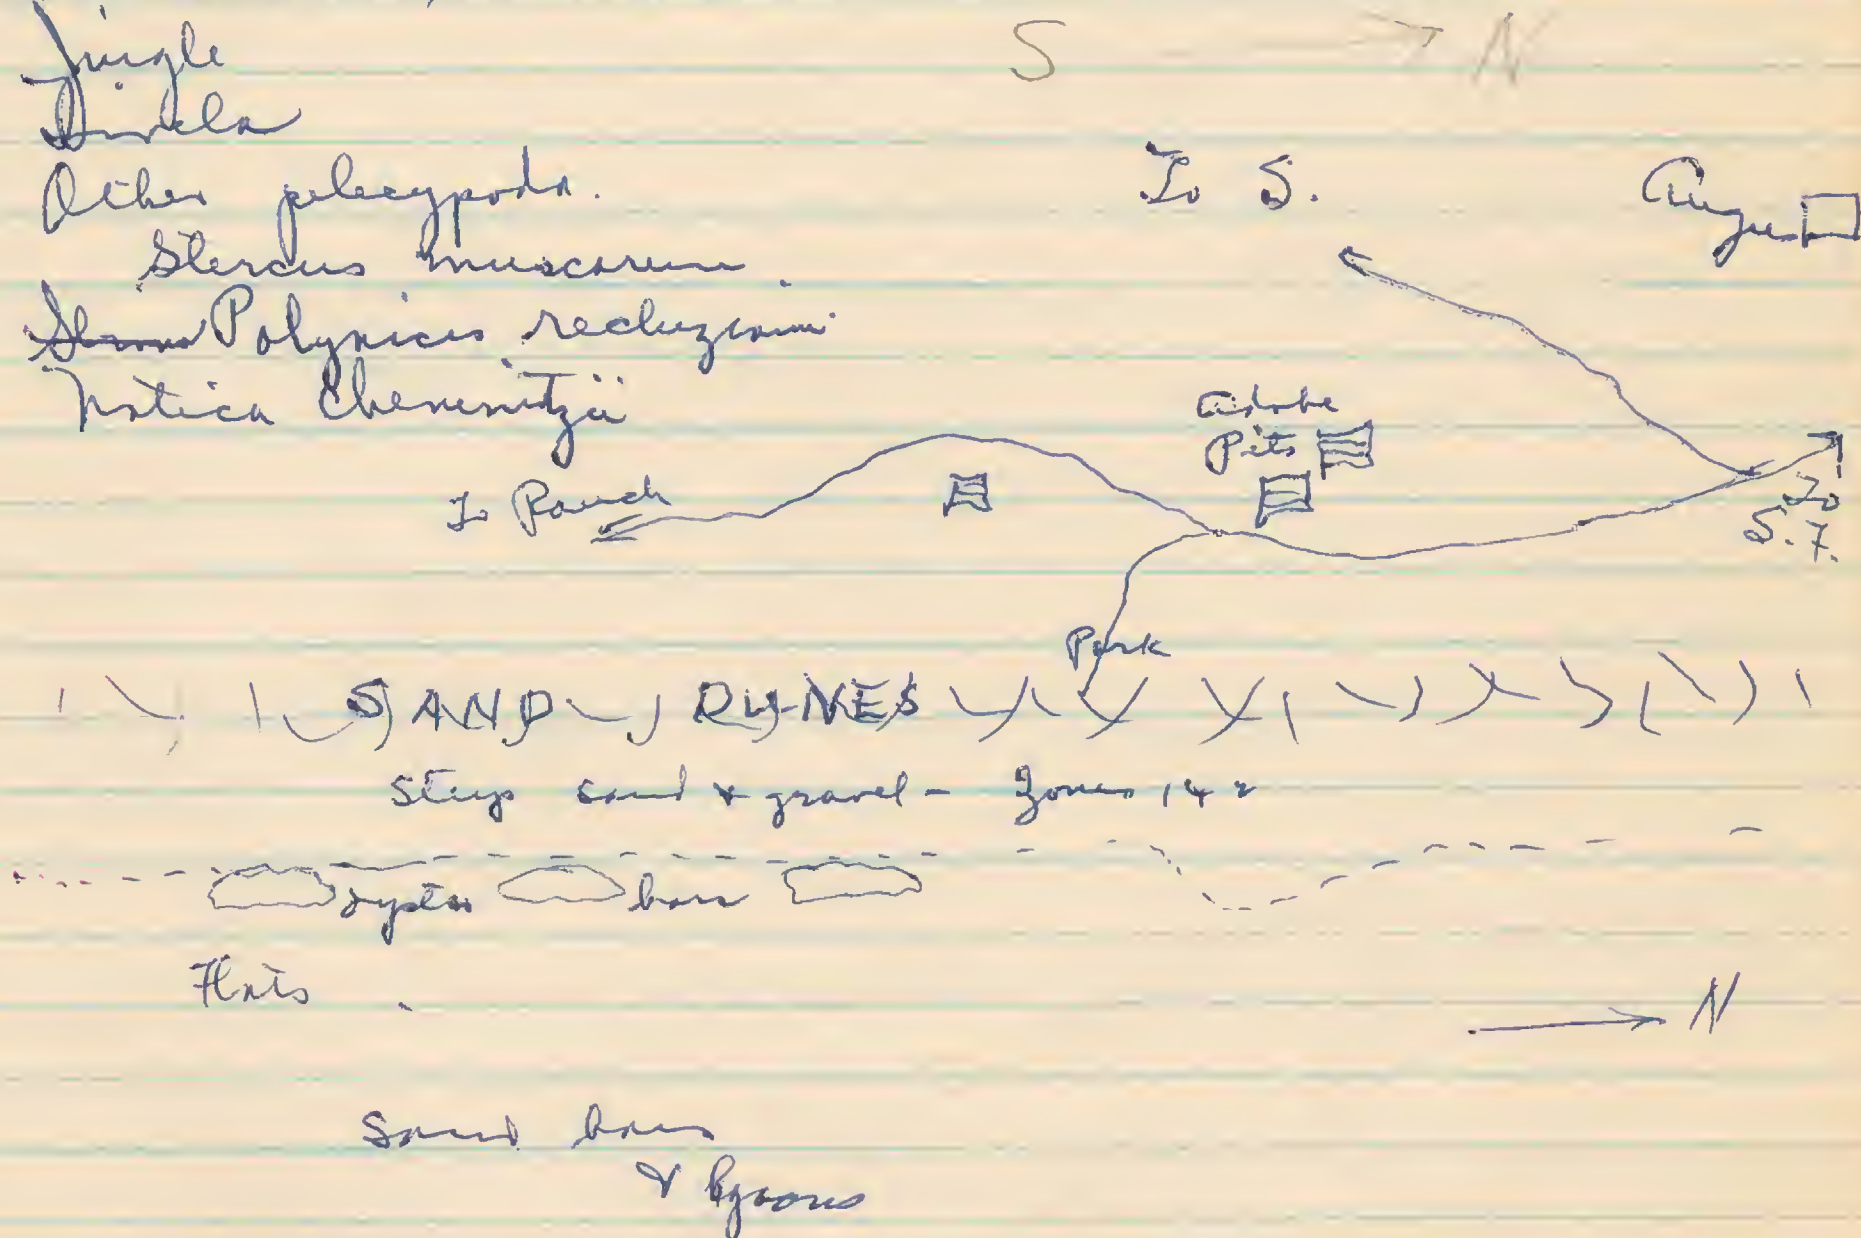 Jingle
S → N
Other pelecypoda.
To S.
Stercus muscarum.
Polynices recluzianus
Natica Chemnitzii
Adobe
Pits
To Ranch
To
S. F.
Park
SAND DUNES
Steep sand & gravel - Zones 1 & 2
oyster bars
Flats
→ N
Sand bars
& lagoons